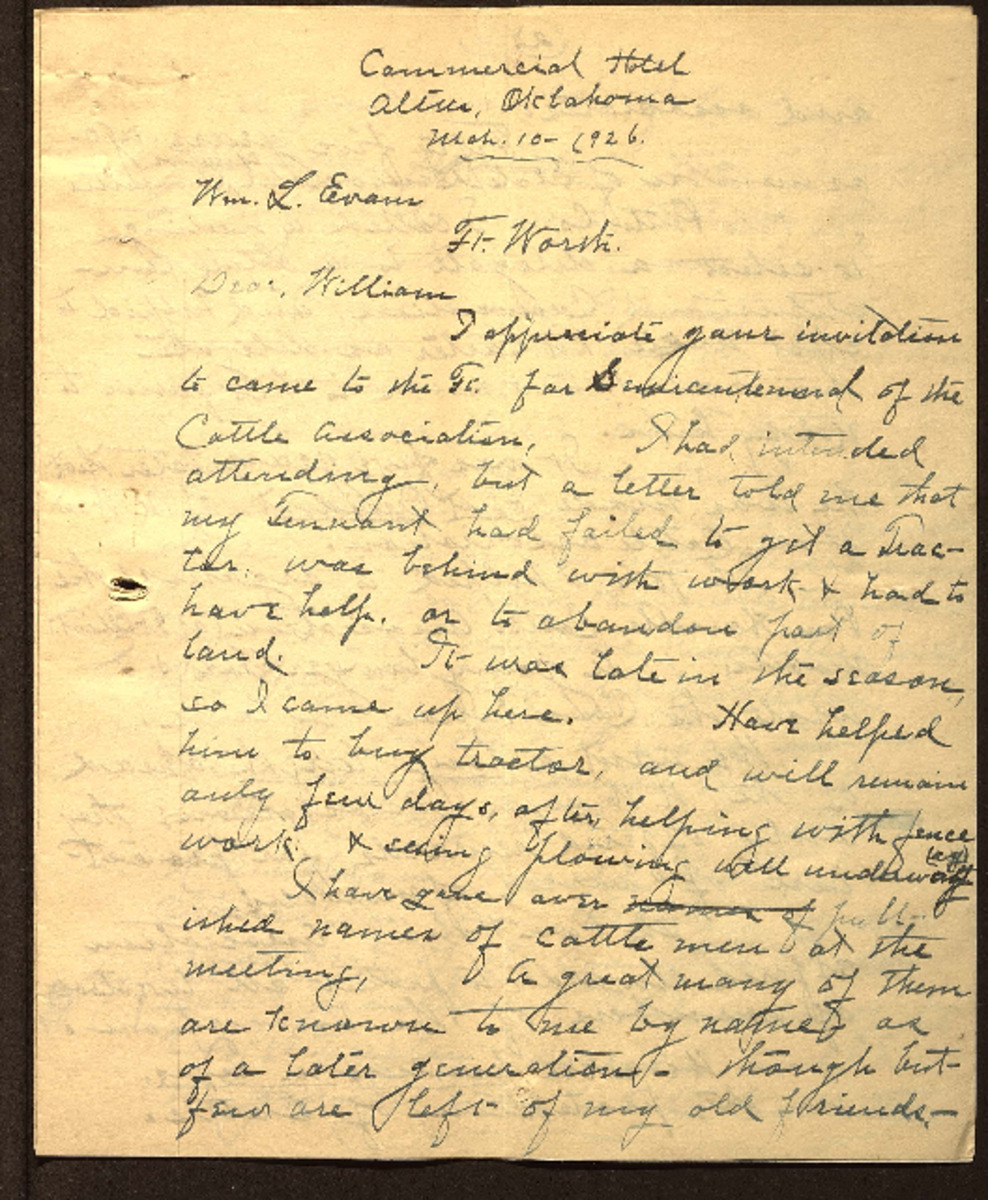 Commercial Hotel
Altus, Oklahoma
Mch. 10 - 1926.
Wm. L. Evans
Ft. Worth.
Dear, William
I appreciate your invitation
to come to the Ft. for Semicentennial of the
Cattle Association, I had intended
attending, but a letter told me that
my Tennant had failed to get a Trac-
tor. was behind with work & had to
have help. or to abandon part of
land. It was late in the season,
so I came up here. Have helped
him to buy tractor, and will remain
only few days, after, helping with fence
work. & seeing plowing well under
way
I have gone over names of publ-
ished names of cattle men at the
meeting, A great many of them
are known to me by name as
of a later generation - though but
few are left of my old friends. -